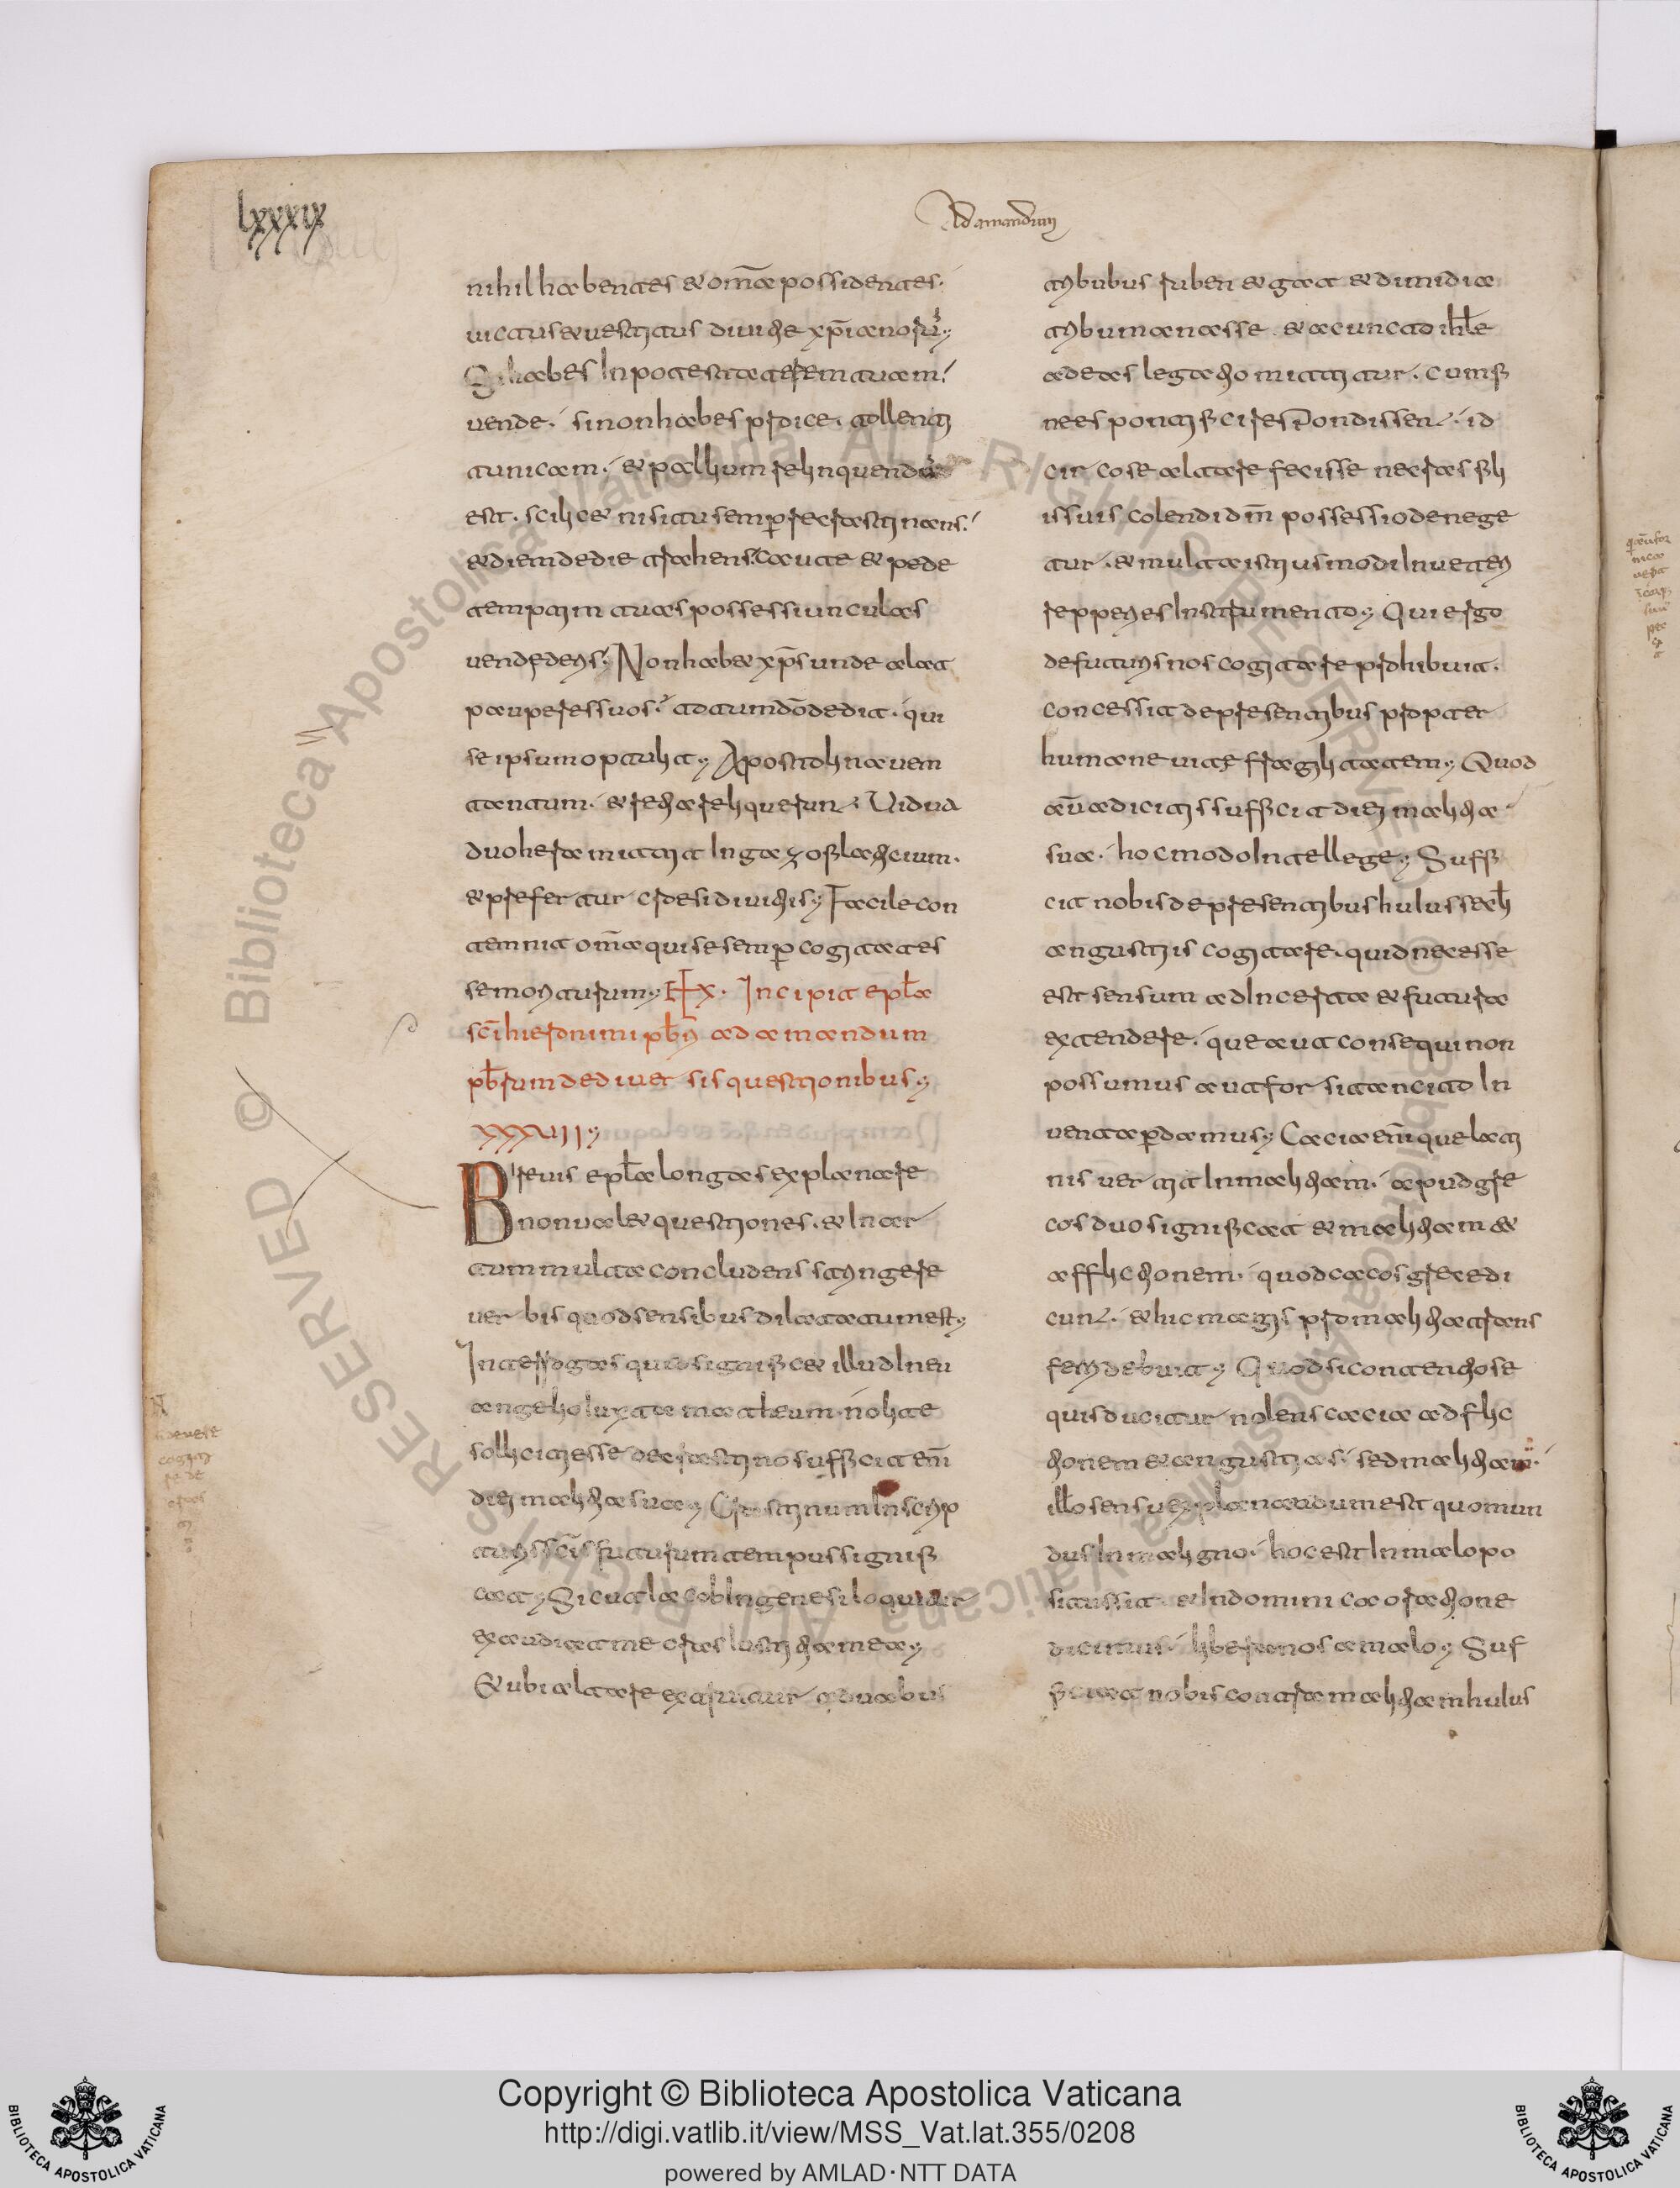 lxxxix
Ad amandum
nihil habentes & om̄a possidentes.
victus & vestitus diviti e xp̄iano ruꝫ;
Si habes In potestate rem tuam.
vende. si non habes proice. tollenti
tunicam. & pallium relinquendū
est. scilic& nisi tu semp̄ recrastinans.
& diem de die trahens. caute & pede
temptim tuas possessiunculas
venderderis; Non hab& xp̄s unde alat
pauperes suos. totum dō dedit. qui
se ipsum optulit; Apostoli navem
tantum. & retia reliquerunt. Vidua
duo hera mittit In gazofilacium.
& prefertur cresi divitiis; Facile con
temnit om̄a qui se semp̄ cogitat es
se moriturum; Ex. Incipit epl̄a
sc̄i hieronimi pb̄ri ad amandum
pb̄rum de diversis questionibus;
xxxvii;
Brevis epl̄a longas explanare
non val& questiones. & In ar
tum multa concludens stringere
verbis quod sensibus dilatatum est;
Interrogas quid signific& illud In eu
angelio luxta matheum. nolite
solliciti esse de crastino sufficit eni̅
diei malitia sua; Crastinum In scrip
turis sc̄is futurum tempus signifi
cat; Sicut Iacob In genesi loquitur
exaudiat me cras Iustitia mea;
& ubi altare extruitur a duabus
tribubus ruben & gat & dimidia
tribu manasse. & a cuncto ihl̄e
ad eas legatio mittitur. cum fi
nees pontifici respondissent. id
circo se altare fecisse ne cras fili
is suis colendi dn̄i possessio denege
tur. & multa istiusmodi In veteri
repperies Instrumento; Qui ergo
de futuris nos cogitare prohibuit.
concessit de presentibus propter
humane vitę fragilitatem; Quod
aū adicitis sufficit diei malitia
sua. hoc modo Intellege; Suffi
cit nobis de presentibus huius secl̄i
angustiis cogitare. quid necesse
est sensum ad Incerta & futura
extendere. que aut consequi non
possumus aut forsitan cito In
venta p̄damus; Cacia eni̅ que lati
nis vertit In malitiam. apud gre
cos duo significat & malitiam &
afflictionem. quod cacos greci di
cunt. & hic magis pro malitia trans
ferri debuit; Quod si contentiose
quis ducitur nolens cacia ad flic
tionem & angustias. sed malitiam.
illo sensu explanandum est quo mun
dus In maligno. hoc est In malo po
situs sit. & In dominica oratione
dicimus. libera nos a malo; Suf
ficiat nobis contra malitiam huius
Copyright © Biblioteca Apostolica Vaticana
http://digi.vatlib.it/view/MSS_Vat.lat.355/0208
powered by AMLAD·NTT DATA
BIBLIOTECA APOSTOLICA VATICANA
BIBLIOTECA APOSTOLICA VATICANA